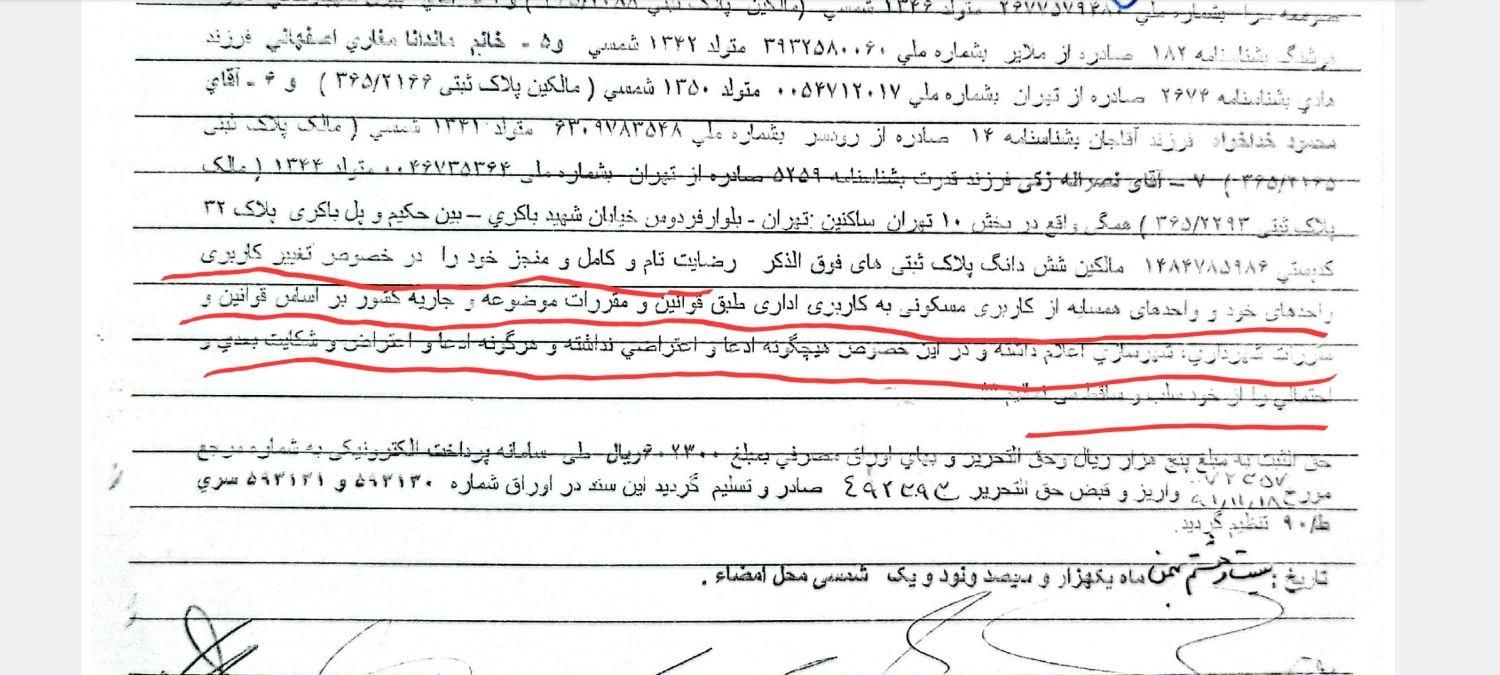 بشماره ملي ۲۶۷۷۵۷۹۴۸۰ متولد ۱۳۴۶ شمسي (مالكين پلاک ثبتي
هوشنگ بشناسنامه ۱۸۲ صادره از ملاير بشماره ملي ۳۹۳۲۵۸۰۰۶۰ متولد ۱۳۴۲ شمسي و۵ - خانم ماندانا مغاري اصفهاني فرزند
هادي بشناسنامه ۲۶۷۴ صادره از تهران بشماره ملي ۰۰۵۴۷۱۲۰۱۷ متولد ۱۳۵۰ شمسي ( مالكين پلاک ثبتی ۳۶۵/۲۱۶۶ ) و ۶ - آقاي
محمود خداخواه فرزند آقاجان بشناسنامه ۱۴ صادره از رودسر بشماره ملي ۶۳۰۹۷۸۳۵۴۸ متولد ۱۳۴۱ شمسي ( مالک پلاک ثبتي
۳۶۵/۲۱۶۵ ) ۷ – آقاي نصراله زكي فرزند قدرت بشناسنامه ۵۲۵۹ صادره از تهران بشماره ملی ۰۰۴۶۷۳۵۳۶۴ متولد ۱۳۴۴ ( مالک
پلاک ثبتی ۳۶۵/۲۲۹۳ ) همگی واقع در بخش ۱۰ تهران ساكنين :تهران - بلوارفردوس خيابان شهيد باكري – بين حكيم و پل باكری پلاک ۳۲
كدپستي ۱۴۸۴۷۸۵۹۸۶ مالكين شش دانگ پلاک ثبتی های فوق الذكر رضايت تام و كامل و منجز خود را در خصوص تغيير كاربری
واحدهای خود و واحدهای همسايه از كاربری مسكونی به كاربری اداری طبق قوانين و مقررات موضوعه و جاريه كشور بر اساس قوانين و
مقررات شهرداري، شهرسازي اعلام داشته و در اين خصوص هيچگونه ادعا و اعتراضي نداشته و هرگونه ادعا و اعتراض و شكايت بعدي و
احتمالي را از خود سلب و ساقط می نمائيم
حق الثبت به مبلغ پنج هزار ريال وحق التحرير و بهاي اوراق مصرفي بمبلغ ۶۰۷۳۰۰ريال طی سامانه پرداخت الكترونيكی به شماره مرجع
مورخ ۹۱/۱۱/۱۸ واريز و قبض حق التحرير ۴۹۲۳۹۳ صادر و تسليم گرديد اين سند در اوراق شماره ۵۹۳۱۳۰ و ۵۹۳۱۳۱ سري
ط/۹۰ تنظيم گرديد.
تاريخ : بيست و هشتم بهمن ماه يكهزار و سيصد ونود و يک شمسی محل امضاء .